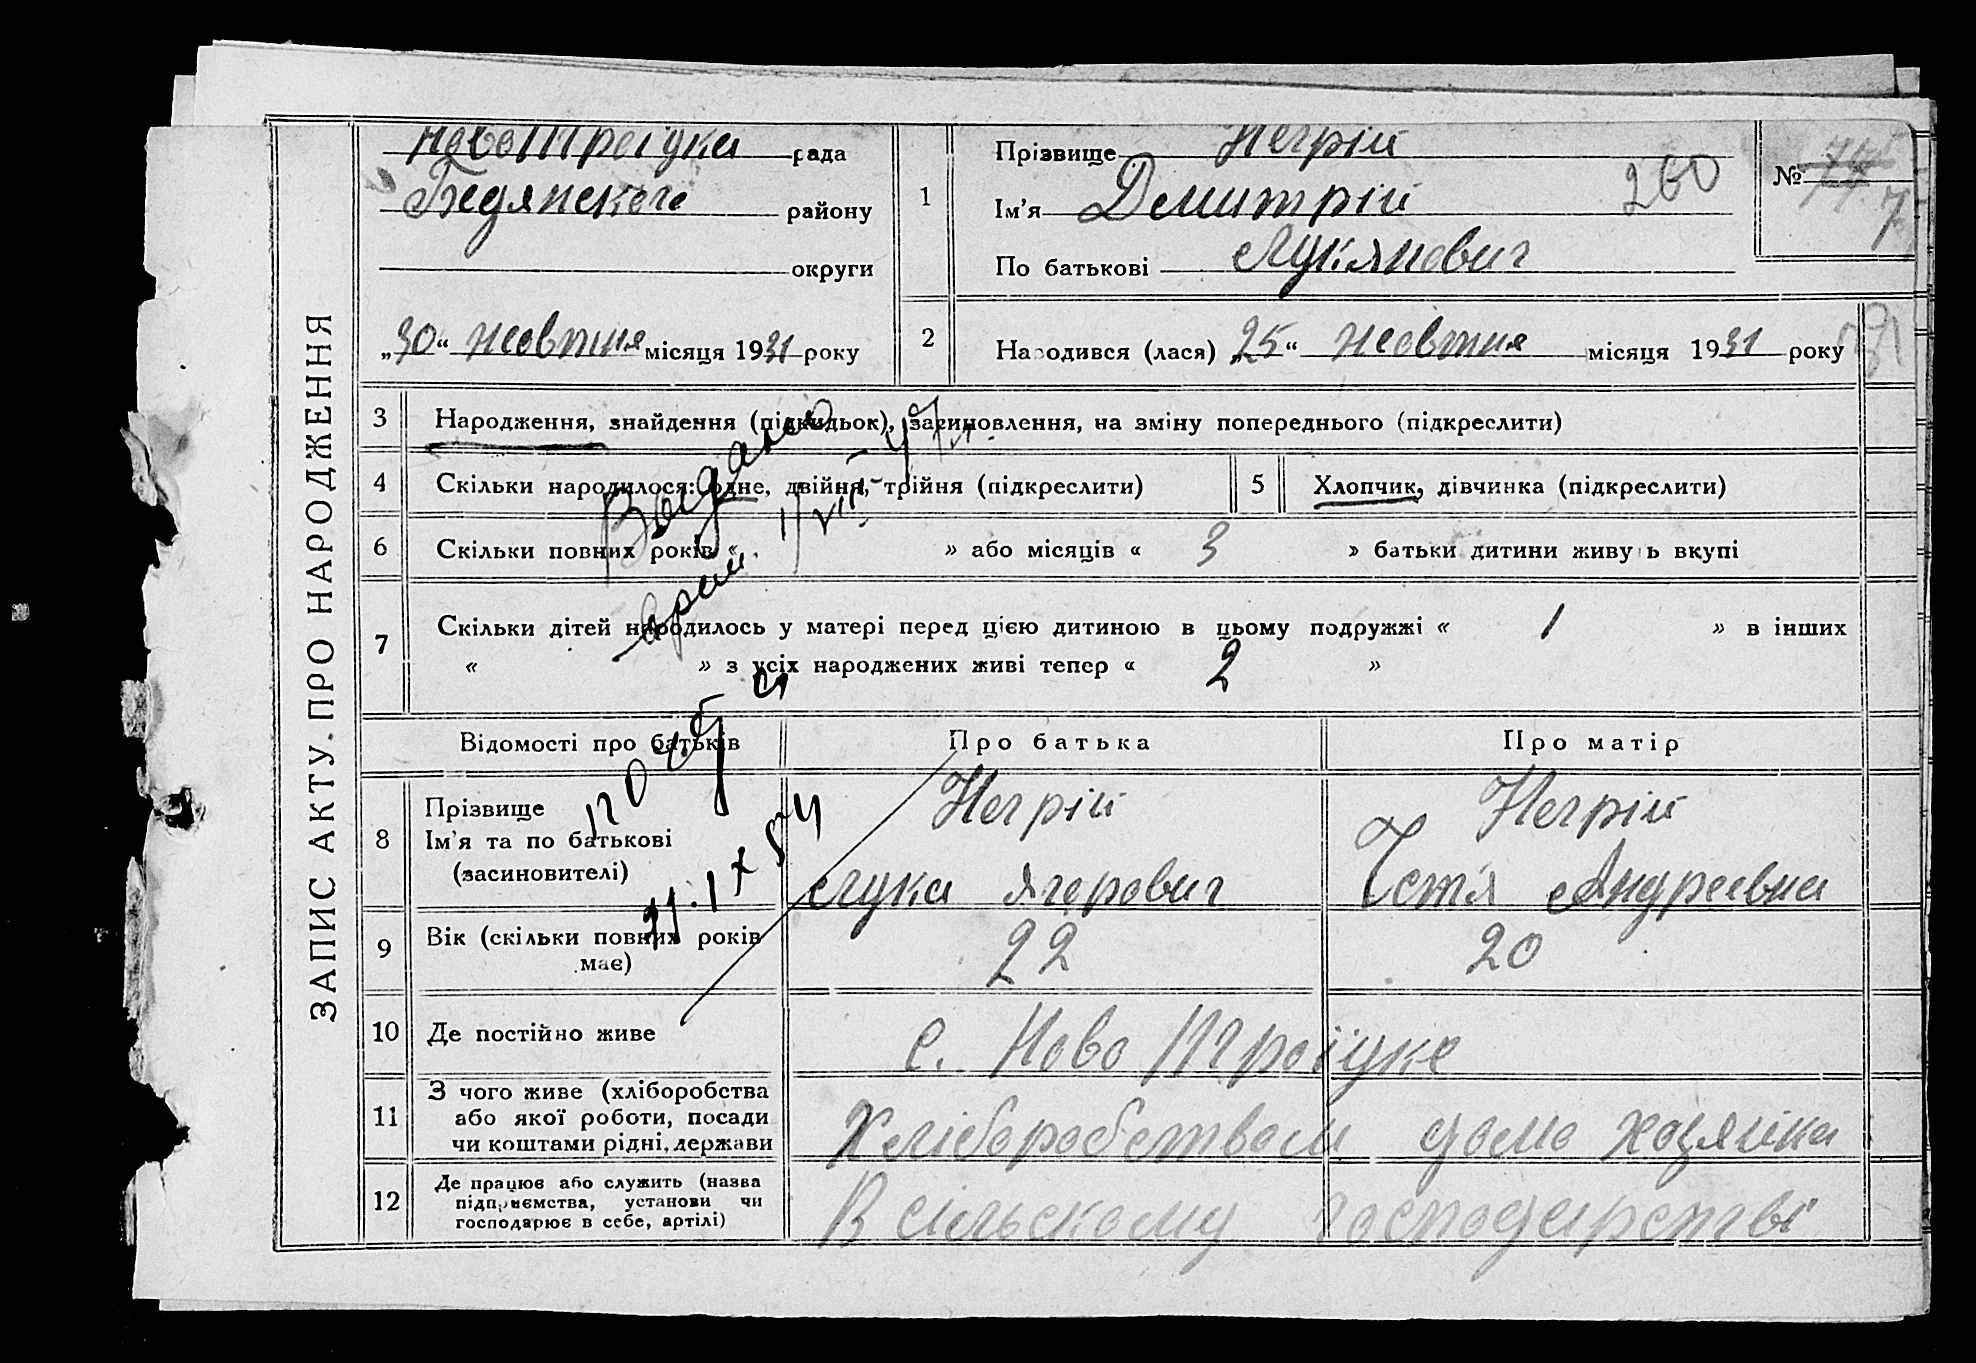 ЗАПИС АКТУ ПРО НАРОДЖЕННЯ
НовоТроїцка рада
району
округи
„30“ жовтня місяця 1931 року
1
Прізвище Негрій
Ім'я Демитрій 260
По батькові Лукянович
№ 7
2
Народився (лася) „25“ жовтня місяця 1931 року
3 Народження, знайдення (підкидьок), засиновлення, на зміну попереднього (підкреслити)
4 Скільки народилося: одне, двійня, трійня (підкреслити)
5 Хлопчик, дівчинка (підкреслити)
6 Скільки повних років « » або місяців « 3 » батьки дитини живуть вкупі
7 Скільки дітей народилось у матері перед цією дитиною в цьому подружжі « 1 » в інших
« » з усіх народжених живі тепер « 2 »
Відомості про батьків
Про батька
Про матір
8 Прізвище
Ім'я та по батькові
(засиновителі)
Негрій
Лука Ягорович
Негрій
Андріівна
9 Вік (скільки повних років
має)
22
20
10 Де постійно живе
с. Ново Троїцке
11 З чого живе (хліборобства
або якої роботи, посади
чи коштами рідні, держави
Хліборобством
домо хозяйка
12 Де працює або служить (назва
підприємства, установи чи
господарює в себе, артілі)
В сільскому господарстві